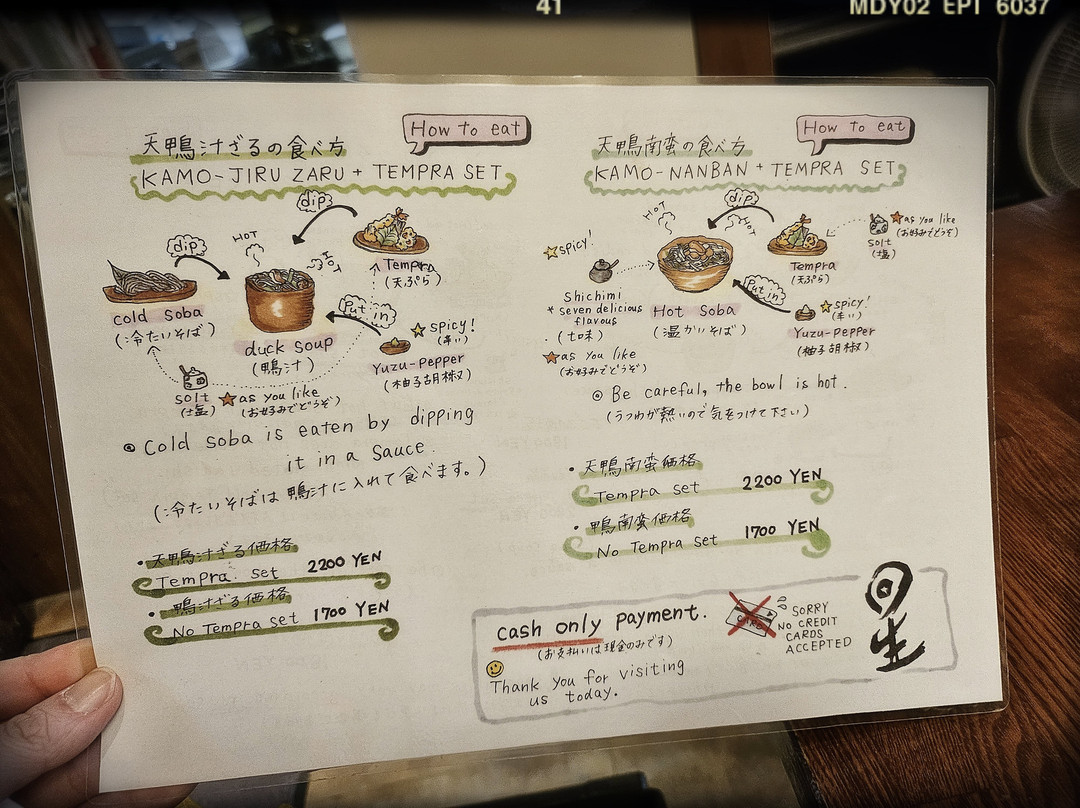 41
MDY02 EPT 6037
How to eat
天鴨汁ざるの食べ方
KAMO-JIRU ZARU + TEMPRA SET
dip
dip
HOT
HOT
Tempra
(天ぷら)
cold soba
(冷たいそば)
Put in
duck soup
(鴨汁)
spicy!
(辛い)
Yuzu-pepper
(柚子胡椒)
solt
(塩)
as you like
(お好みでどうぞ)
Cold soba is eaten by dipping
it in a sauce.
(冷たいそばは鴨汁に入れて食べます。)
・天鴨汁ざる価格
Tempra set 2200 YEN
・鴨汁ざる価格
No Tempra set 1700 YEN
How to eat
天鴨南蛮の食べ方
KAMO-NANBAN + TEMPRA SET
dip
HOT
HOT
spicy!
as you like
(お好みでどうぞ)
solt
(塩)
Tempra
(天ぷら)
Shichimi
* seven delicious
flavous
(七味)
Hot Soba
(温かいそば)
Put in
spicy!
(辛い)
Yuzu-pepper
(柚子胡椒)
as you like
(お好みでどうぞ)
◎ Be careful, the bowl is hot.
(うつわが熱いので気をつけて下さい)
・天鴨南蛮価格
Tempra set 2200 YEN
・鴨南蛮価格
No Tempra set 1700 YEN
cash only payment.
(お支払いは現金のみです)
CARD
SORRY
NO CREDIT
CARDS
ACCEPTED
Thank you for visiting
us today.
回生